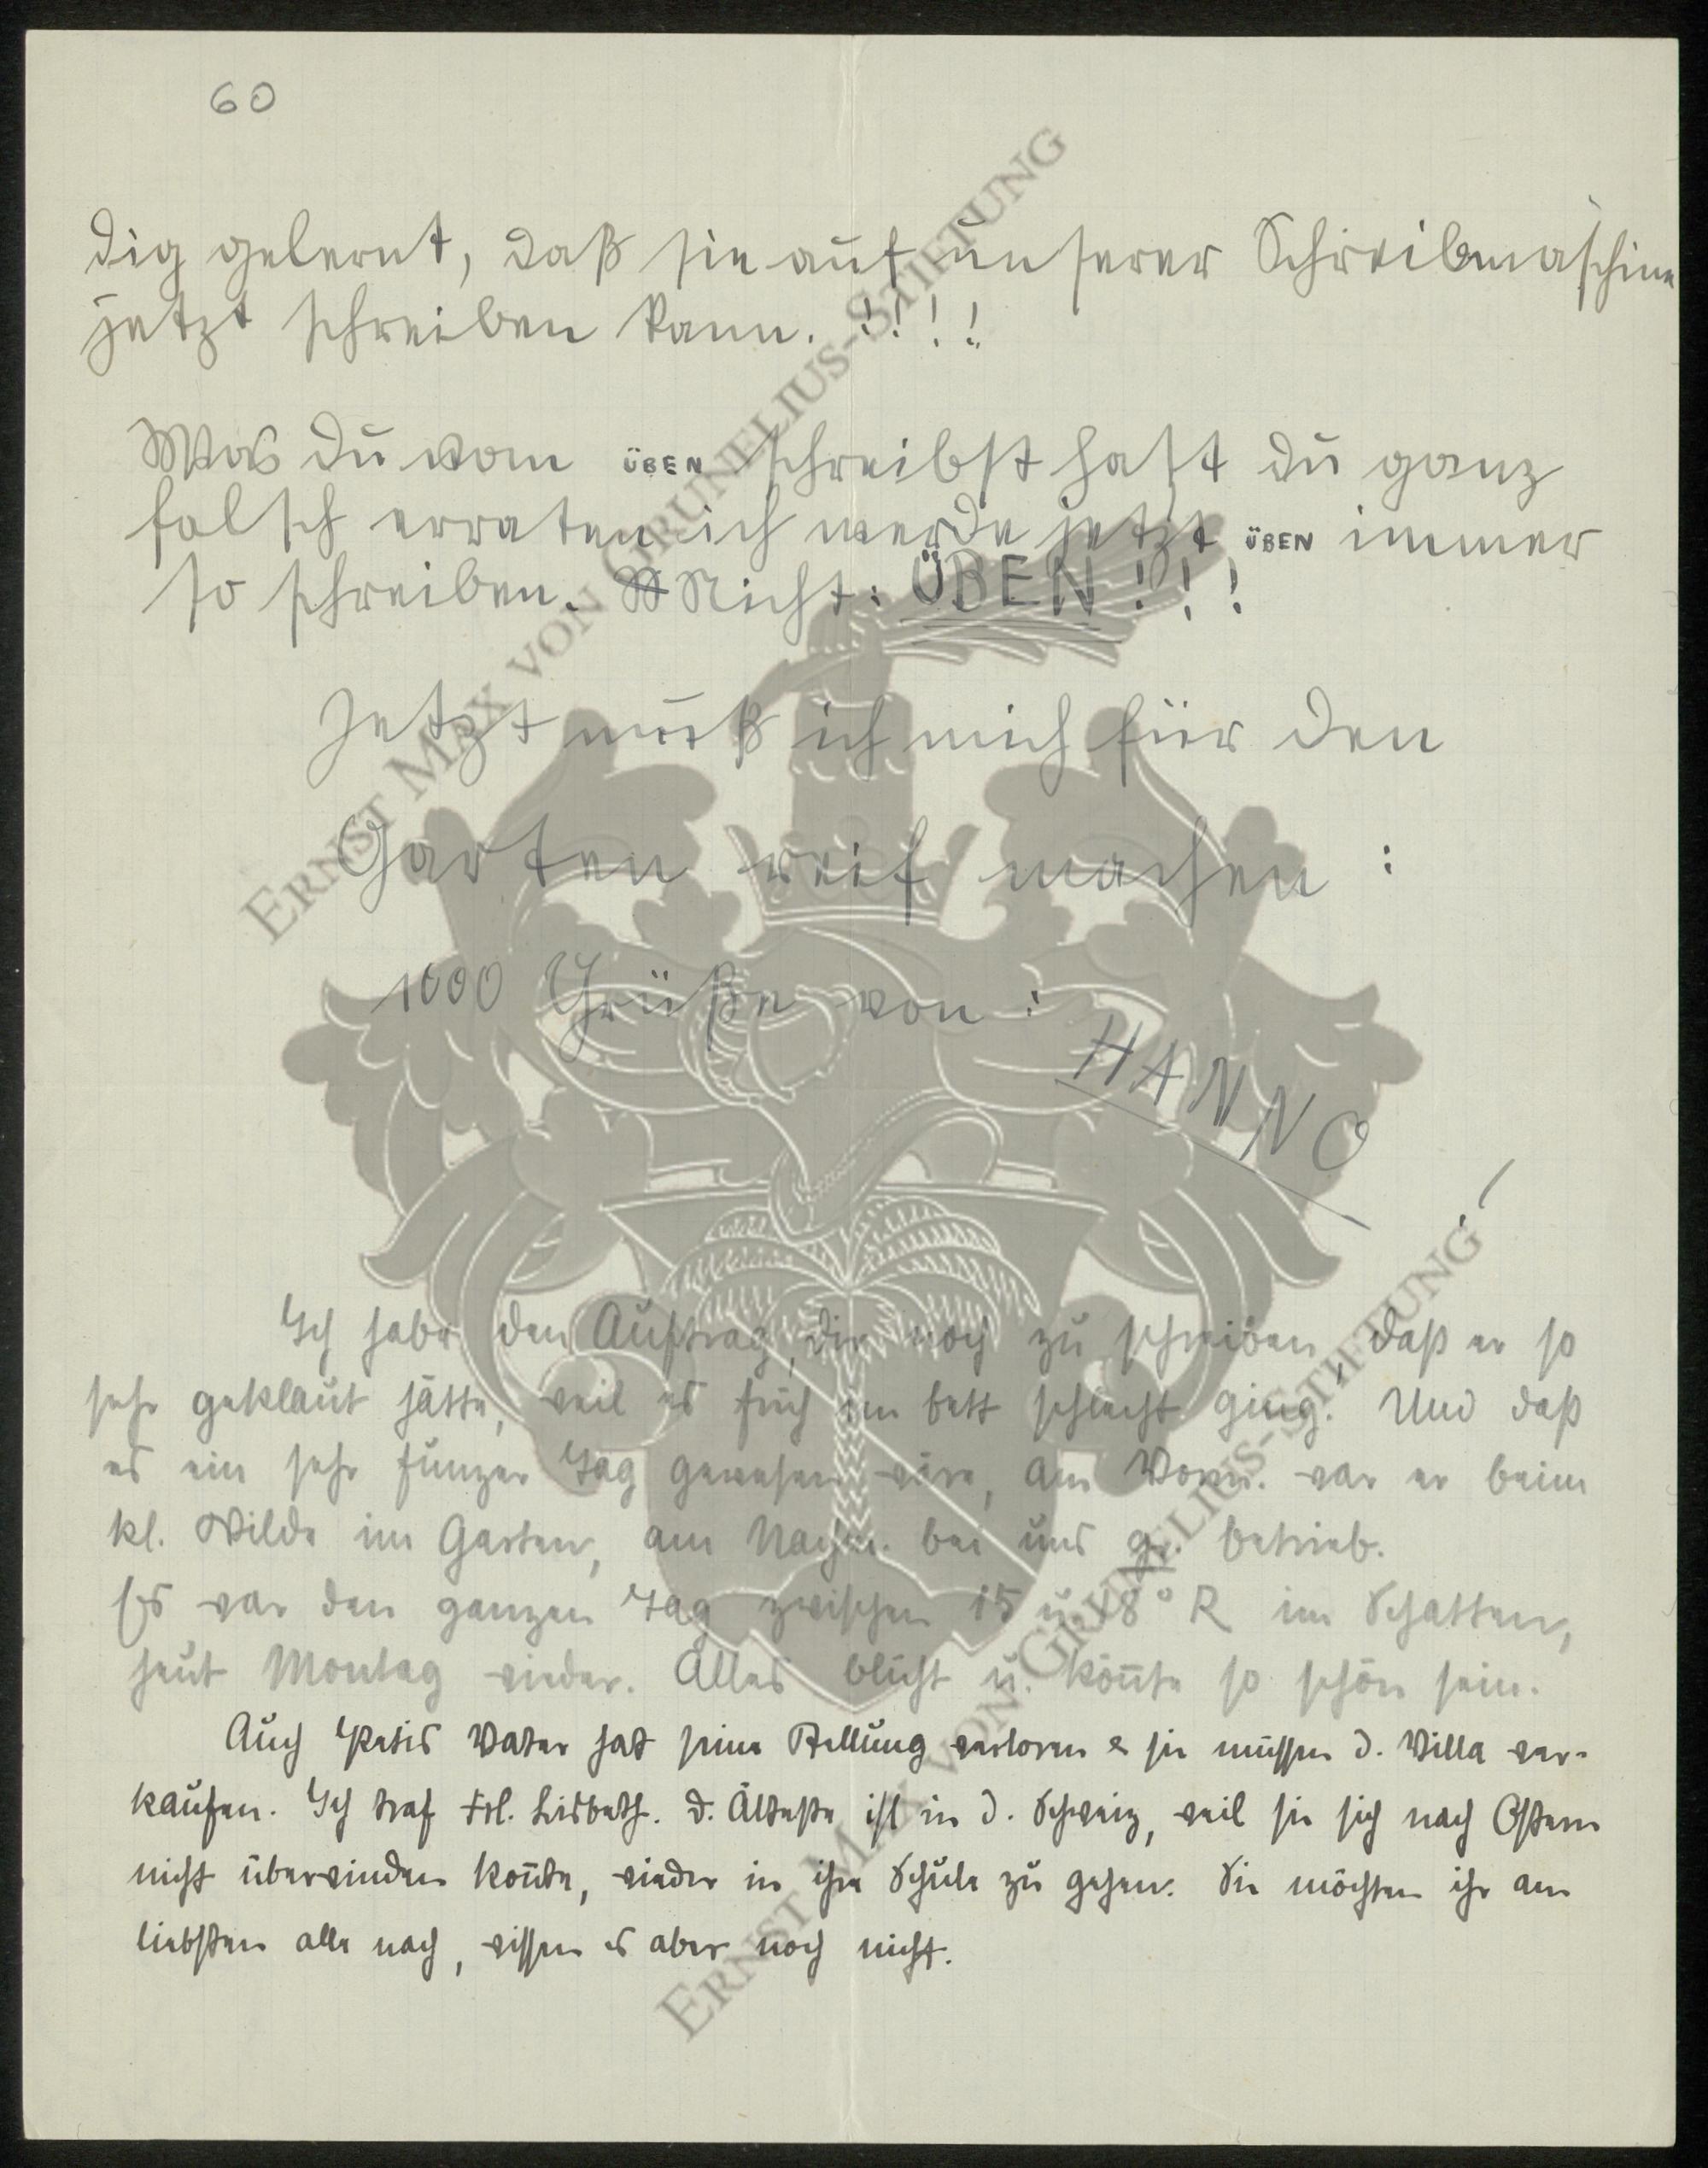 60
dig gelernt, daß sie auf unserer Schreibmaschine
jetzt schreiben kann. !!!!
Was du vom ÜBEN schreibst hast du ganz
falsch erraten ich werde jetzt ÜBEN immer
so schreiben. Nicht: ÜBEN!!!
Jetzt muß ich mich für den
Garten reif machen:
1000 Grüße von:
HANNO!
Ich habe den Auftrag, dir noch zu schreiben, daß er so
sehr geklaut hätte, weil es früh im bett schlecht ging. Und daß
es ein sehr Tag gewesen wäre, am Vorm. war er beim
kl. Wilde im Garten, am Nachm. bei uns gr. betrieb.
Es war den ganzen Tag zwischen 15 u. 18° R im Schatten,
heut Montag wieder. Alles blüht u. kön̄te so schön sein.
Auch Vater hat seine Stellung verloren & sie müssen d. Villa ver-
kaufen. Ich traf Frl. Lisbeth. d. Älteste ist in d. Schweiz, weil sie sich nach Ostern
nicht überwinden kon̄te, wieder in ihre Schule zu gehen. Sie möchten ihr am
liebsten alle nach, wissen es aber noch nicht.
ERNST MAX VON GRUNELIUS-STIFTUNG
ERNST MAX VON GRUNELIUS-STIFTUNG